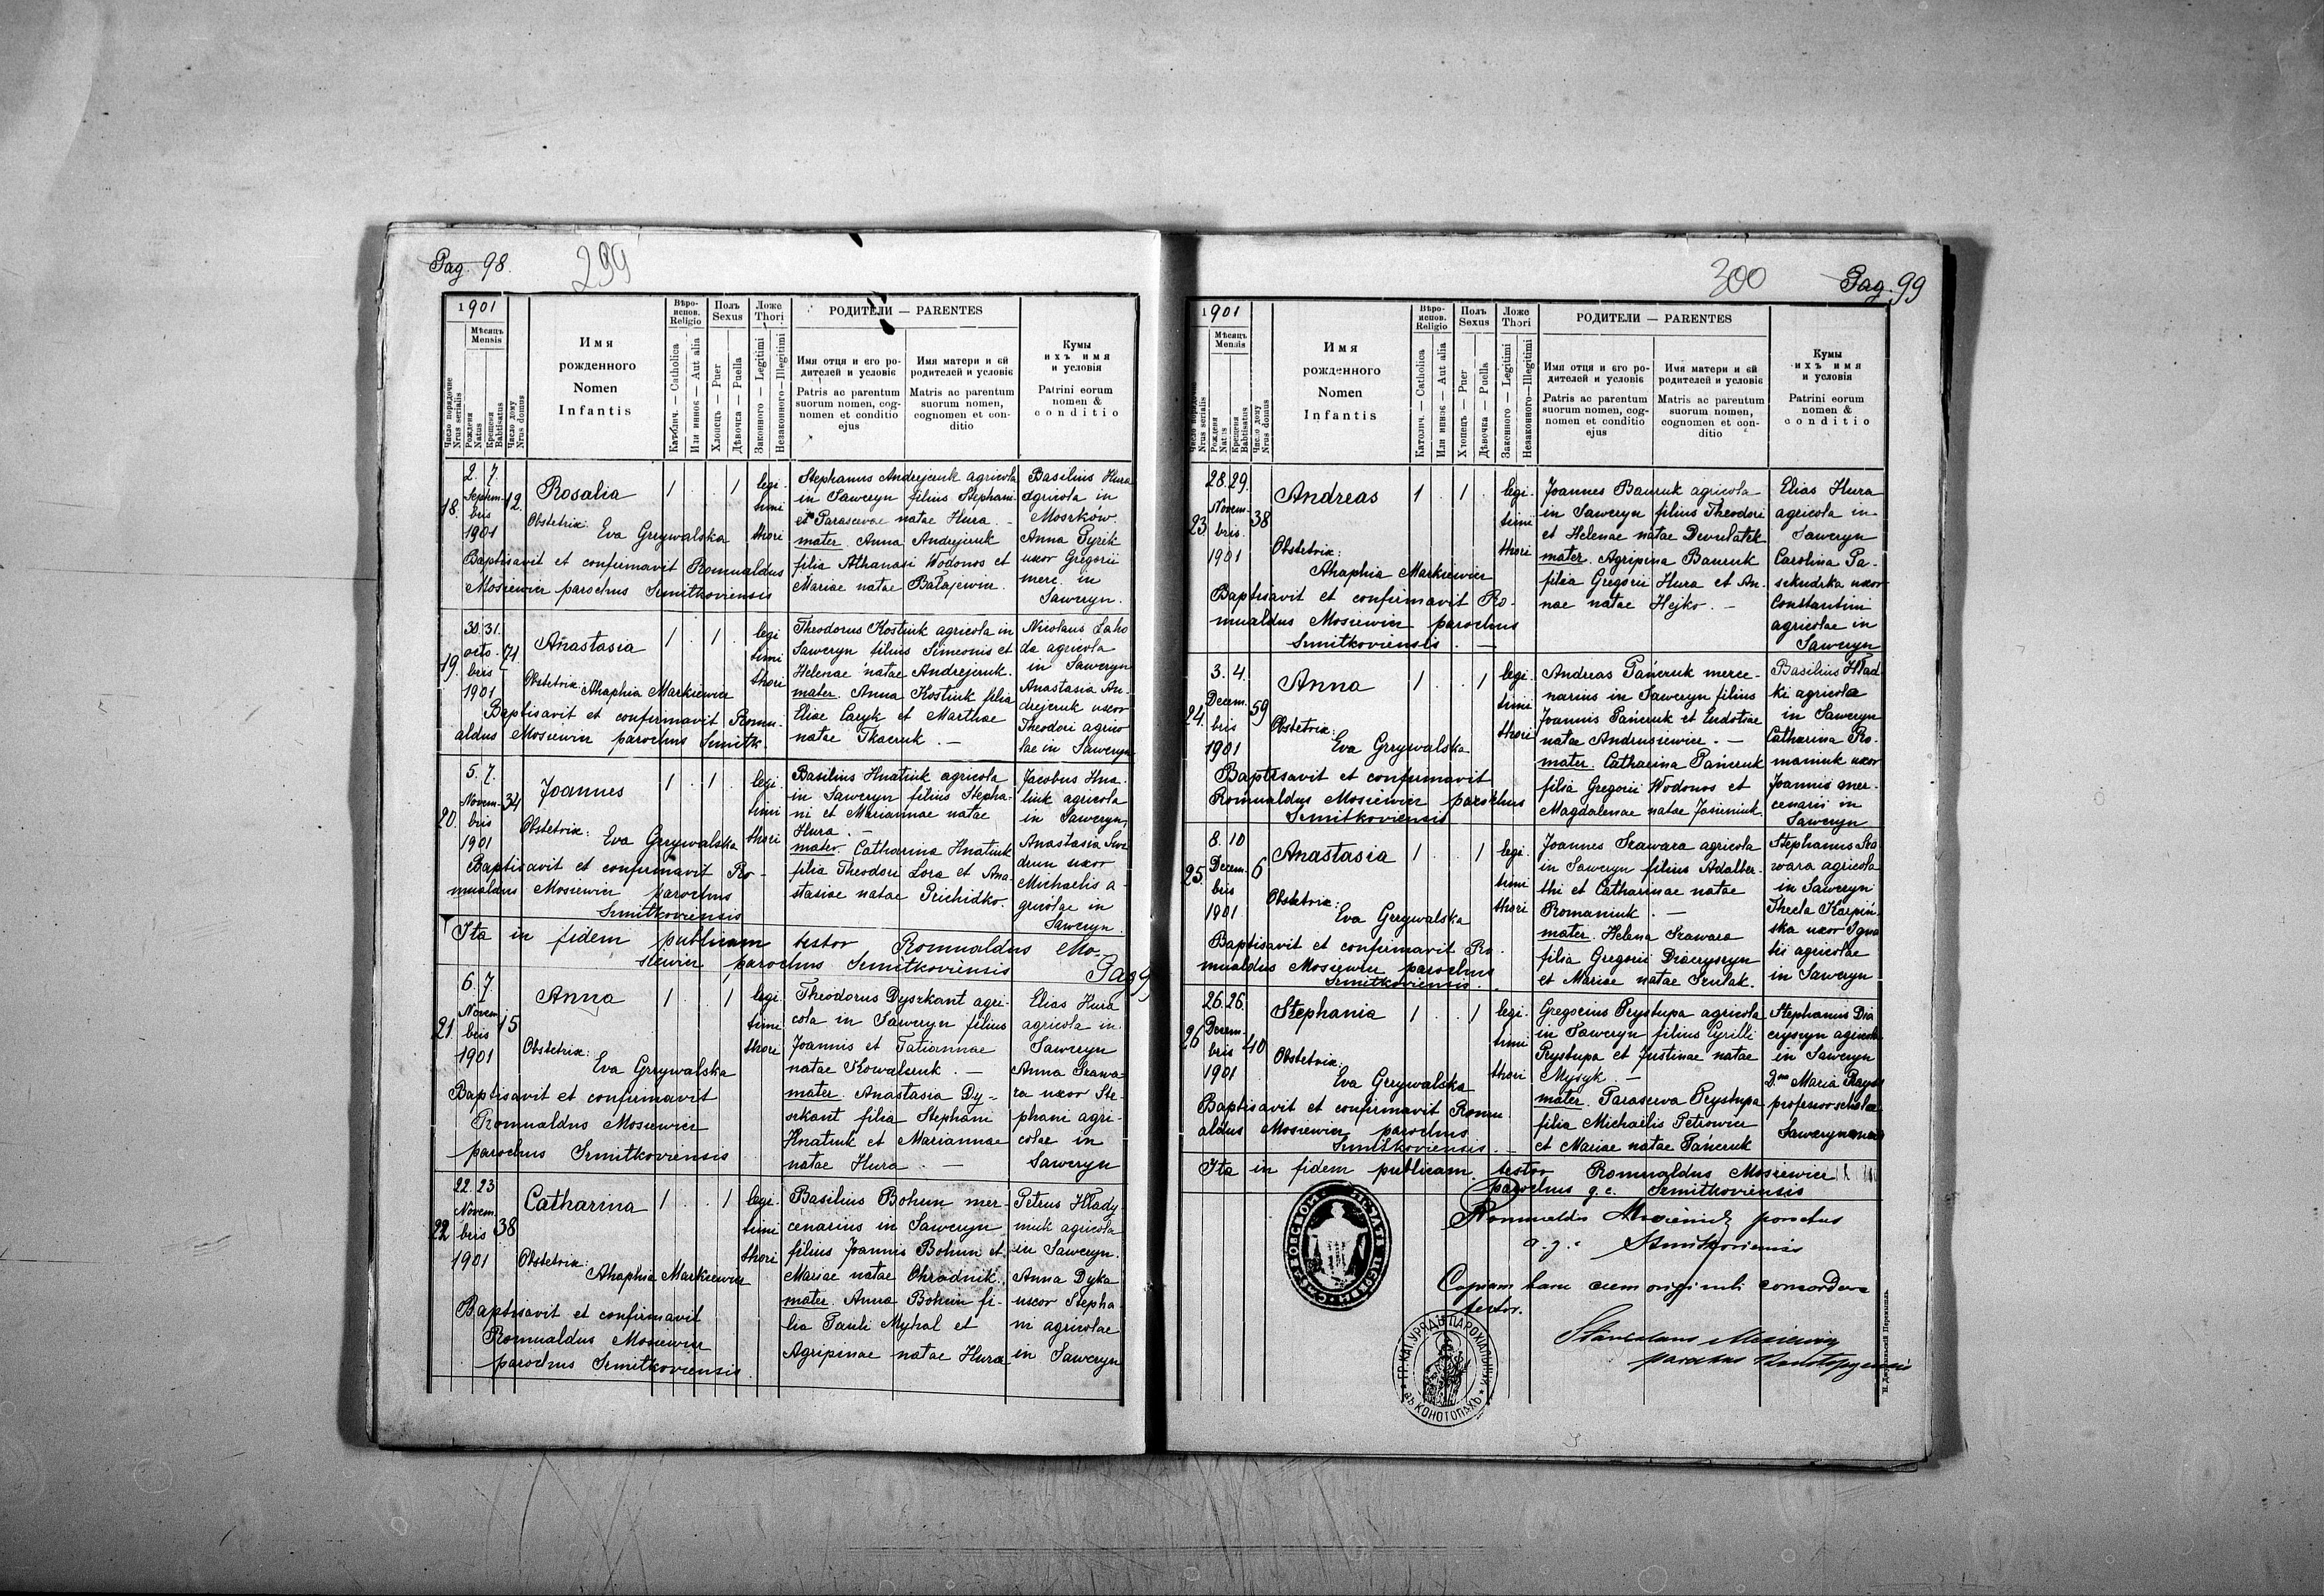 Pag. 98.
299
1901
Мѣсяцъ
Mensis
Число порядочне
Nrus serialis
Рожденя
Natus
Крещеня
Babtisatus
Число дому
Nrus domus
Имя
рожденного
Nomen
Infantis
Вѣро-
испов.
Religio
Католич. — Catholica
Или инноє — Aut alia
Полъ
Sexus
Хлопець — Puer
Дѣвочка — Puella
Ложе
Thori
Законного — Legitimi
Незаконного — Illegitimi
РОДИТЕЛИ — PARENTES
Имя отця и єго ро-
дителей и условіє
Patris ac parentum
suorum nomen, cog-
nomen et conditio
ejus
Имя матери и єй
родителей и условіє
Matris ac parentum
suorum nomen,
cognomen et con-
ditio
Кумы
ихъ имя
и условія
Patrini eorum
nomen &
conditio
18.
2. 7.
Septem-
bris
1901
12.
Rosalia
1 . . 1
legi-
timi
thori
Obstetrix: Eva Grzywalska
Baptisavit et confirmavit Romualdus
Mosiewicz parochus Szmitkoviensis
Stephanus Andrejczuk agricola
in Saweryn filius Stephani
et Parascevae natae Hura. —
mater. Anna Andrejczuk
filia Athanasi Wodonos et
Mariae natae Batajewicz.
Basilius Hura
agricola in
Moszków.
Anna Pyrik
uxor Gregorii
merc. in
Saweryn.
19.
30. 31.
octo-
bris
1901
71.
Anastasia
1 . 1 .
legi
timi
thori
Obstetrix: Ahaphia Markiewicz
Baptisavit et confirmavit Romu-
aldus Mosiewicz parochus Szmitk.
Theodorus Kostiuk agricola in
Saweryn filius Simeonis et
Helenae natae Andrejczuk.
mater. Anna Kostiuk filia
Eliae Caryk et Marthae
natae Tkaczuk. —
Nicolaus Laho
da agricola
in Saweryn
Anastasia An-
drejczuk uxor
Theodori agrico
lae in Saweryn
20.
5. 7.
Novem-
bris
1901
34
Joannes
1 . 1 .
legi.
timi
thori
Obstetrix: Eva Grzywalska
Baptisavit et confirmavit Ro-
mualdus Mosiewicz parochus
Szmitkoviensis
Basilius Hnatiuk agricola
in Saweryn filius Stepha-
ni et Mariannae natae
Hura. —
mater. Catharina Hnatiuk
filia Theodori Lora et Ana-
stasiae natae Prichidko.
Jacobus Hna-
tiuk agricola
in Saweryn,
Anastasia
drun uxor
Michaelis a-
gricolae in
Saweryn.
Ita in fidem publicam testor Romualdus Mo-
siewicz parochus Szmitkoviensis
Pag 9
21.
6. 7.
Novem
bris
1901
15
Anna
1 . . 1
legi
timi
thori
Obstetrix:
Eva Grzywalska
Baptisavit et confirmavit
Romualdus Mosiewicz
parochus Szmitkoviensis
Theodorus Dyszkant agri-
cola in Saweryn filius
Joannis et Tatiannae
natae Kowalczuk. —
mater. Anastasia Dy-
szkant filia Stephani
Hnatiuk et Mariannae
natae Hura. —
Elias Hura
agricola in
Saweryn
Anna Szawa-
ra uxor Ste-
phani agri-
colae in
Saweryn
22
22. 23
Novem
bris
1901
38
Catharina
1 . . 1
legi-
timi
thori
Obstetrix:
Ahaphia Markiewicz
Baptisavit et confirmavit
Romualdus Mosiewicz
parochus Szmitkoviensis.
Basilius Bohun mer-
cenarius in Saweryn
filius Joannis Bohun et
Mariae natae Ohrodnik.
mater. Anna Bohun fi-
lia Pauli Myhal et
Agripinae natae Hura
Petrus Hłady
niuk agricola
in Saweryn.
Anna Dyka
uxor Stepha-
ni agricolae
in Saweryn
300
Pag. 99
1901
Мѣсяцъ
Mensis
Число порядочне
Nrus serialis
Рожденя
Natus
Крещеня
Babtisatus
Число дому
Nrus domus
Имя
рожденного
Nomen
Infantis
Вѣро-
испов.
Religio
Католич. — Catholica
Или инноє — Aut alia
Полъ
Sexus
Хлопець — Puer
Дѣвочка — Puella
Ложе
Thori
Законного — Legitimi
Незаконного — Illegitimi
РОДИТЕЛИ — PARENTES
Имя отця и єго ро-
дителей и условіє
Patris ac parentum
suorum nomen, cog-
nomen et conditio
ejus
Имя матери и єй
родителей и условіє
Matris ac parentum
suorum nomen,
cognomen et con-
ditio
Кумы
ихъ имя
и условія
Patrini eorum
nomen &
conditio
23
28. 29.
Novem-
bris.
1901
38
Andreas
1 . 1 .
legi-
timi
thori
Obstetrix:
Ahaphia Markiewicz
Baptisavit et confirmavit Ro-
mualdus Mosiewicz parochus
Szmitkoviensis. —
Joannes Bauruk agricola
in Saweryn filius Theodori
et Helenae natae Dewulatek
mater. Agripina Bauruk
filia Gregorii Hura et An-
nae natae Hejko. —
Elias Hura
agricola in
Saweryn
Carolina Pa-
sekudzka uxor
Constantini
agricolae in
Saweryn
24.
3. 4.
Decem.
bris
1901
59
Anna
1 . . 1
legi-
timi
thori
Obstetrix:
Eva Grzywalska
Baptisavit et confirmavit
Romualdus Mosiewicz parochus
Szmitkoviensis
Andreas Pańczuk merce-
narius in Saweryn filius
Joannis Pańczuk et Eudotiae
natae Andrusiewicz. —
mater. Catharina Pańczuk
filia Gregorii Wodonos et
Magdalenae natae Jasieniuk.
Basilius Hład
ki agricola
in Saweryn
Catharina Ro-
maniuk uxor
Joannis mer-
cenarii in
Saweryn
25.
8. 10
Decem.
bris
1901
6
Anastasia
1 . . 1
legi-
timi
thori
Obstetrix:
Eva Grzywalska
Baptisavit et confirmavit Ro-
mualdus Mosiewicz parochus
Szmitkoviensis.
Joannes Szawara agricola
in Saweryn filius Adalber-
thi et Catharinae natae
Romaniuk. —
mater. Helena Szawara
filia Gregorii Diaczyszyn
et Mariae natae Szulak.
Stephanus Sza
wara agricola
in Saweryn
Thecla Karpiń-
ska uxor Igna
tii agricolae
in Saweryn
26
26. 26.
Decem.
bris
1901
40
Stephania
1 . . 1
legi-
timi
thori
Obstetrix:
Eva Grzywalska
Baptisavit et confirmavit Romu-
aldus Mosiewicz parochus
Szmitkoviensis. —
Gregorius Prystupa agricola
in Saweryn filius Cyrilli
Prystupa et Justinae natae
Mysyk. —
mater. Parascewa Prystupa
filia Michaelis Petrowicz
et Mariae natae Pańczuk
Stephanus Dia
czyszyn agricola
in Saweryn
Maria
professor scholae
Ita in fidem publicam testor Romualdus Mosiewicz
parochus g. c. Szmitkoviensis
Romualdus Mosiewicz parochus
Copiam hanc cum originali concordare
testor.
parochus Konotopyensis
ГР. КАТ. УРЯДЪ ПАРОХІАЛЬНЫЙ
ВЪ КОНОТОПАХЪ